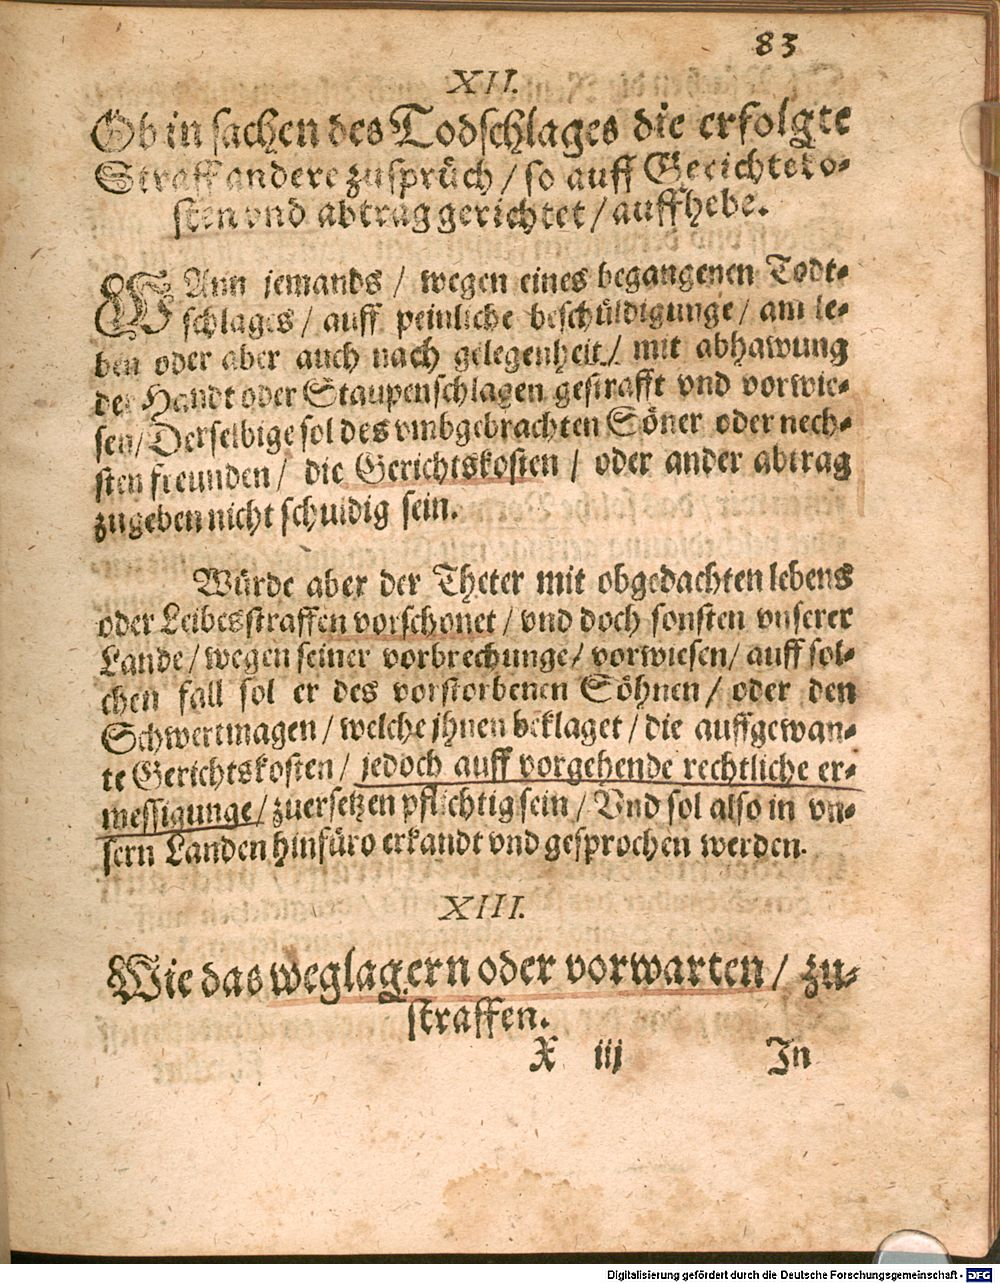 83
XII.
Ob in sachen des Todschlages die erfolgte
Straff andere zusprüch / so auff Gerichtsko-
sten vnd abtrag gerichtet / auffhebe.
WAnn jemands / wegen eines begangenen Todt-
schlages / auff peinliche beschüldigunge / am le-
ben oder aber auch nach gelegenheit / mit abhawung
der Handt oder Staupenschlagen gestrafft vnd vorwie-
sen / Derselbige sol des vmbgebrachten Söner oder nech-
sten freunden / die Gerichtskosten / oder ander abtrag
zugeben nicht schuldig sein.
Würde aber der Theter mit obgedachten lebens
oder Leibesstraffen vorschonet / vnd doch sonsten vnserer
Lande / wegen seiner vorbrechunge / vorwiesen / auff sol-
chen fall sol er des vorstorbenen Söhnen / oder den
Schwertmagen / welche jhnen beklaget / die auffgewan-
te Gerichtskosten / jedoch auff vorgehende rechtliche er-
messigunge / zuersetzen pflichtig sein / Vnd sol also in vn-
sern Landen hinfüro erkandt vnd gesprochen werden.
XIII.
Wie das weglagern oder vorwarten / zu-
straffen.
X iij In
Digitalisierung gefördert durch die Deutsche Forschungsgemeinschaft - DFG